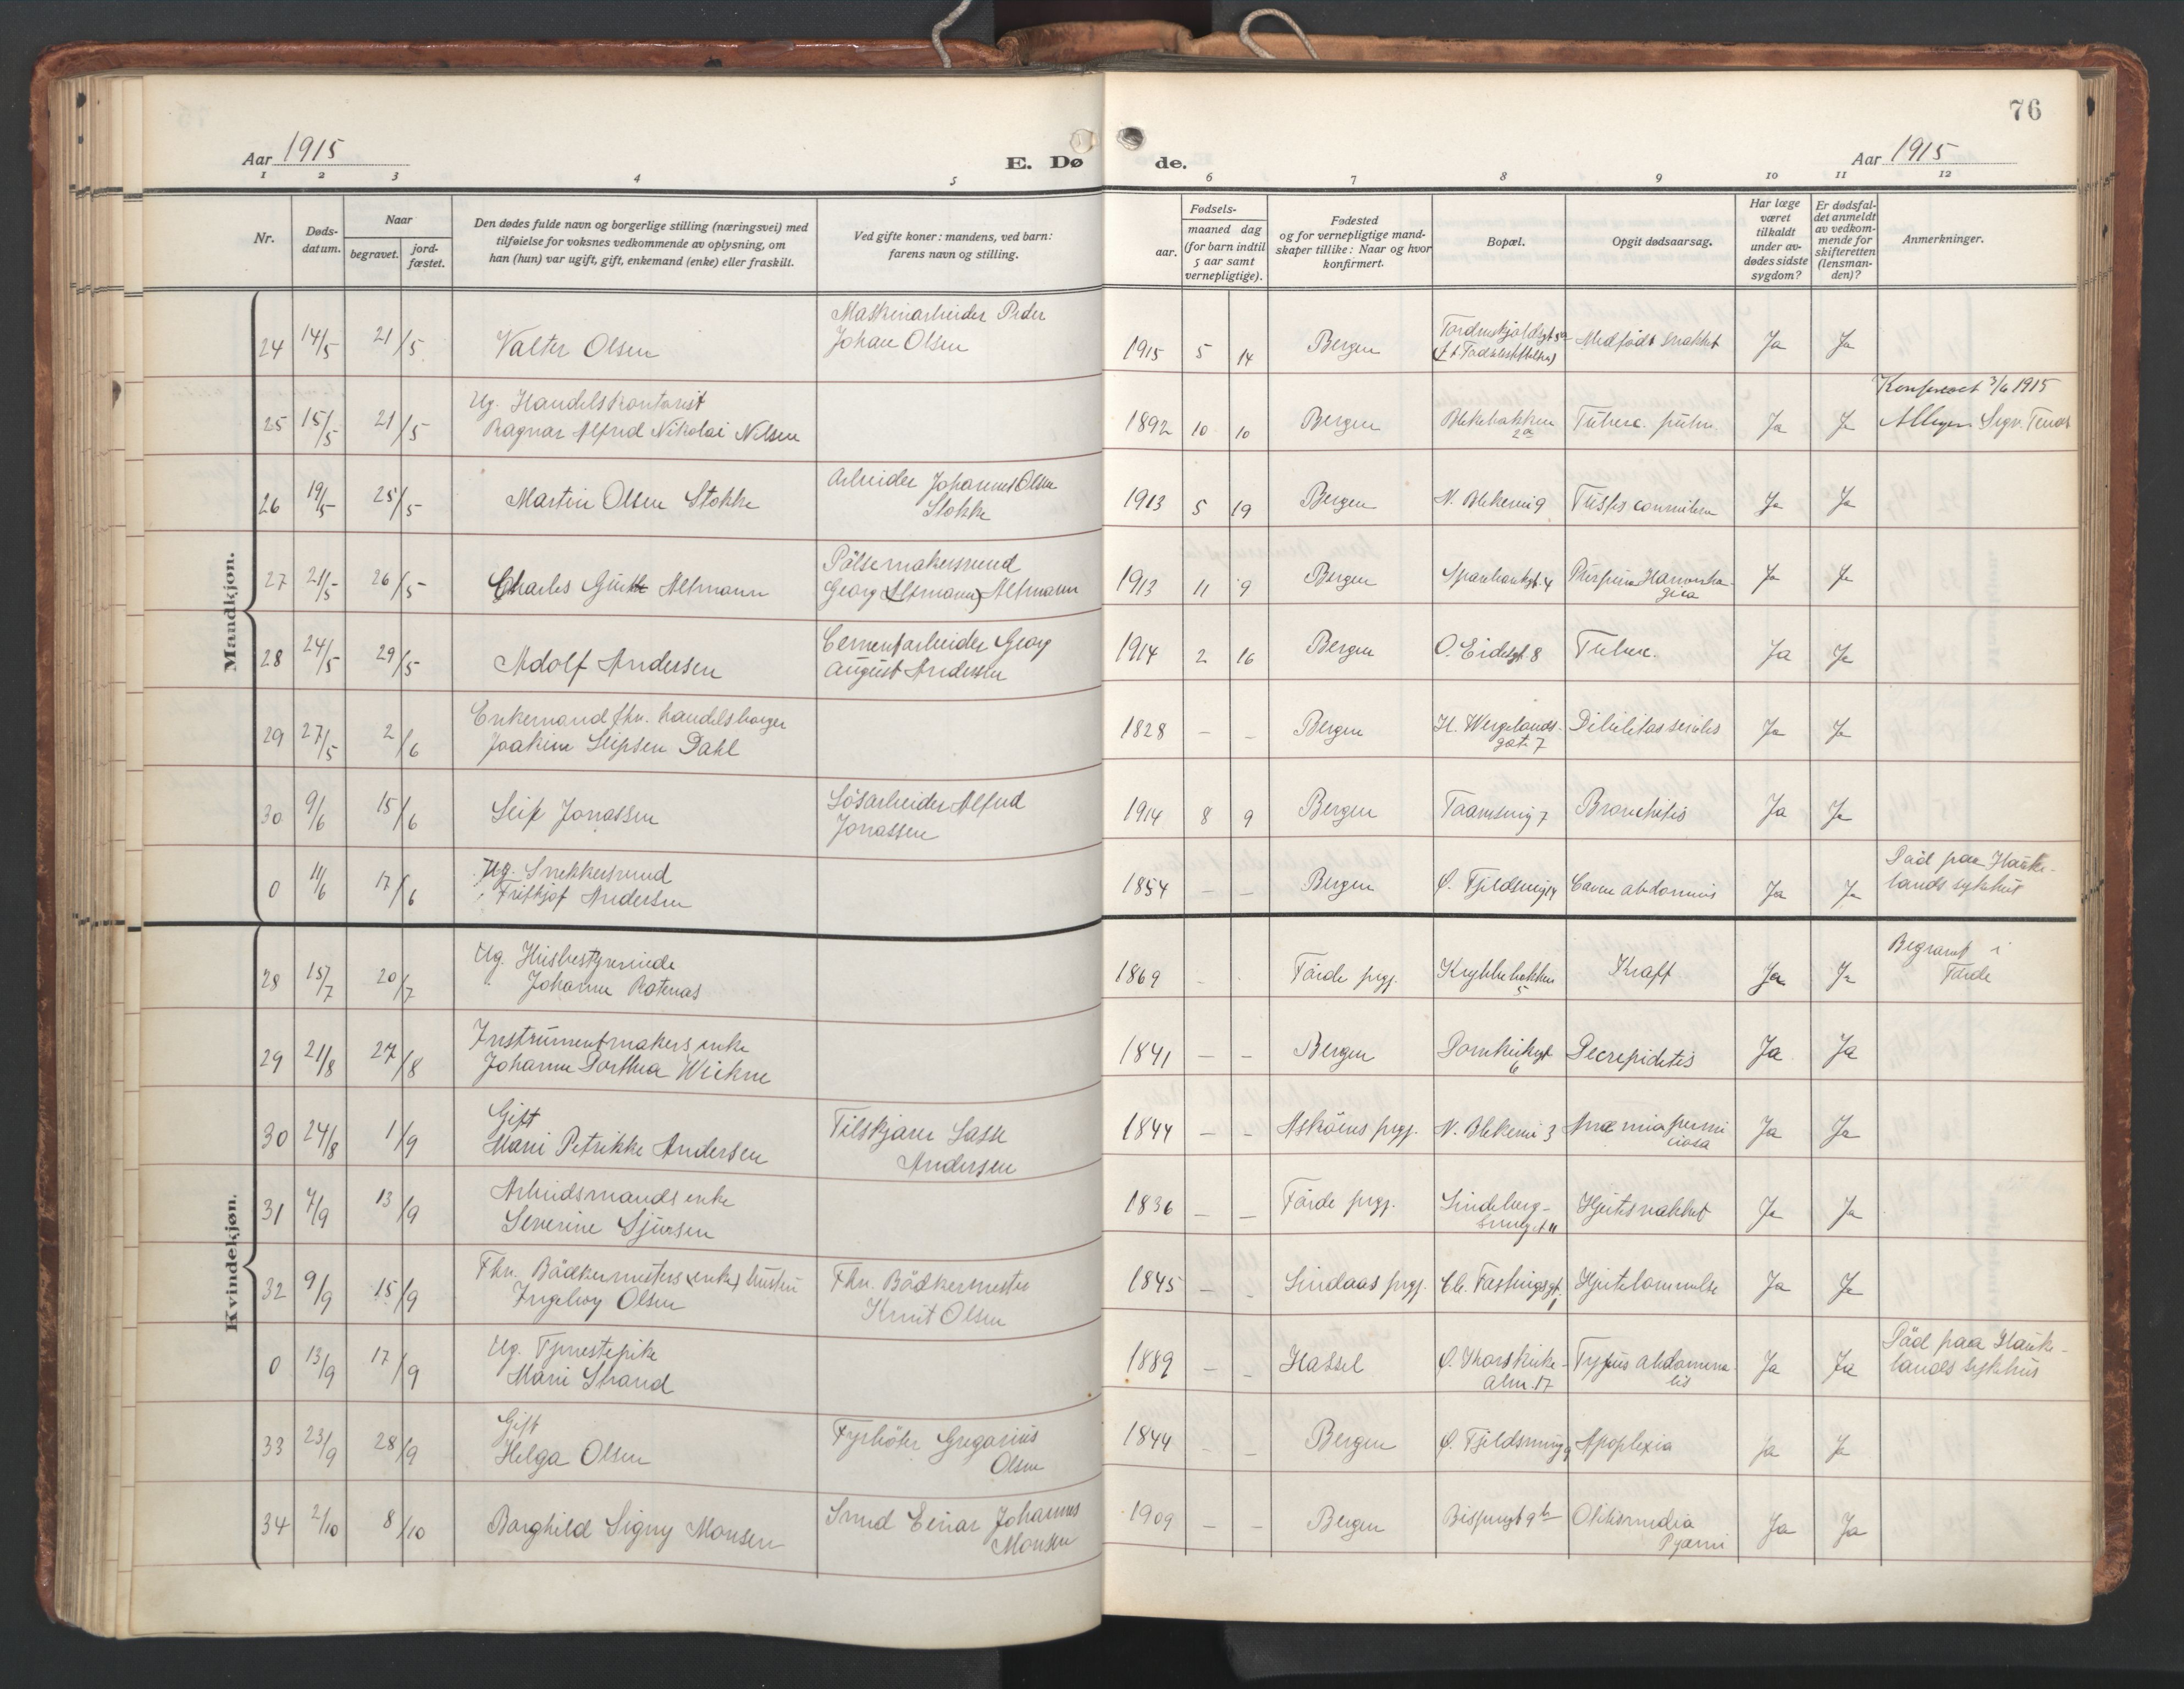 76
Aar 1915
E. Dø de.
Aar 1915
1 2 3 4 5 6 7 8 9 10 11 12
Nr.
Døds-
datum.
Naar
begravet.
jord-
fæstet.
Den dødes fulde navn og borgerlige stilling (næringsvei) med
tilføielse for voksnes vedkommende av oplysning, om
han (hun) var ugift, gift, enkemand (enke) eller fraskilt.
Ved gifte koner: mandens, ved barn:
farens navn og stilling.
Fødsels-
aar.
maaned dag
(for barn indtil
5 aar samt
vernepligtige).
Fødested
og for vernepligtige mand-
skaper tillike: Naar og hvor
konfirmert.
Bopæl.
Opgit dødsaarsag.
Har læge
været
tilkaldt
under av-
dødes sidste
sygdom?
Er dødsfal-
det anmeldt
av vedkom-
mende for
skifteretten
(lensman-
den)?
Anmerkninger.
Mandkjøn.
24 14/5 21/5 Valter Olsen
Maskinarbeider Peder
Johan Olsen
1915 5 14 Bergen
Medfødt svakhet Ja Ja
25 15/5 21/5
Ug. Handelskontorist
Ragnar Alfred Nikolai Nilsen
1892 10 10 Bergen
Blekebakken
2a
Tuberc. pulm. Ja Ja
3/6 1915
26 19/5 25/5 Martin Olsen Stokke
Arbeider Johannes Olsen
Stokke
1913 5 19 Bergen N. Blekevei 9 Ja Ja
27 21/5 26/5 Charles Altmann
Pølsemakersvend
Georg (Altmann) Altmann
1913 11 9 Bergen Sparebankgt. 4 Ja Ja
28 24/5 29/5 Adolf Andersen
Cementarbeider Georg
August Andersen
1914 2 16 Bergen O. Eidesgt. 8 Tuberc. Ja Ja
29 27/5 2/6
Enkemand fhv. handelsborger
Joakim Seipsen Dahl
1828 — — Bergen
H. Wergelands-
gate 7
Debilitas senilis Ja Ja
30 9/6 15/6 Leif Jonassen
Løsarbeider Alfred
Jonassen
1914 8 9 Bergen 7 Bronchitis Ja Ja
0 11/6 17/6
Ug. Snekkersvend
Fritkjof Andersen
1854 — — Bergen Ø. Fjeldsmug 14 Cancer abdominis Ja Ja
Død paa Hauke-
lands sykehus
Kvindekjøn.
28 15/7 20/7
Ug. Husbestyrerinde
Johanne Rotenas
1869 - - Førde prgj.
Krybbebakken
5
Kræft Ja Ja
Begravet i
Førde
29 21/8 27/8
Instrumentmakers enke
Johanne Dorthea
1841 — — Bergen
Domkirkegt
6
Ja Ja
30 24/8 1/9
Gift
Marie Petrikke Andersen
Filskjærer Lasse
Andersen
1844 — — Askøens prgj. N. Blekevei 3
Anæmia perni
ciosa
Ja Ja
31 7/9 13/9
Arbeidsmands enke
Severine Sjursen
1836 — — Førde prgj.
Lindeberg-
smuget 11
Hjertesvakhet Ja Ja
32 9/9 15/9
Fhv. Bødkermesters (enke) hustru
Ingeborg Olsen
Fhv. Bødkermester
Knut Olsen
1845 — - Lindaas prgj. Cl. Fastingsgt. 1 Hjertelammelse Ja Ja
0 13/9 17/9
Ug. Tjenestepike
Marie Strand
1889 — Hassel
Ø. Korskirke-
alm. 17
Typus abdomina-
lis
Ja Ja
Død paa Hauke-
lands sykehus
33 23/9 28/9
Gift
Helga Olsen
Fyrbøter Gregorius
Olsen
1844 - — Bergen Ø. Fjeldsmug 9 Apoplexia Ja Ja
34 2/10 8/10 Borghild Signy Monsen
Smed Einar Johannes
Monsen
1909 — — Bergen Bispengt 9b
Otitis media
Pyæmi
Ja Ja